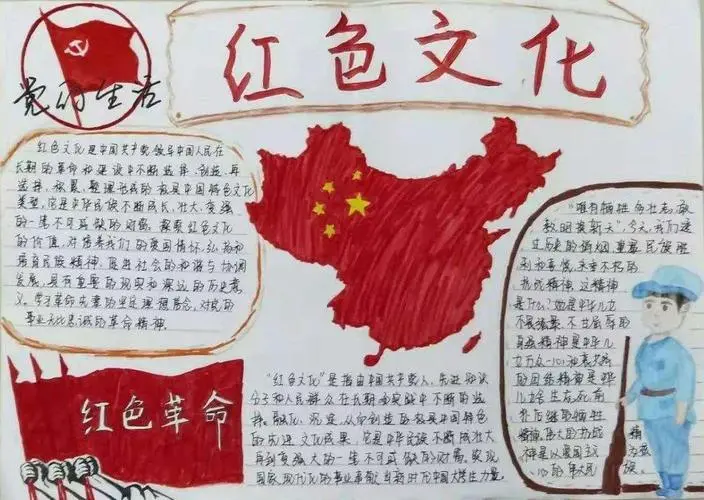 红色文化
党的生活
红色文化是中国共产党领导中国人民在
长期的革命和建设中不断选择、创造、再
选择、积晨、整理形成的极具中国特色文化
类型,它是中华民族不断成长、壮大、变强
的一笔不可或缺的财富。探索红色文化
的价值,对培养我们的爱国情怀、弘扬和
培育民族精神、促进社会的和谐与协调
发展,具有重要的现实和深远的历史意
义。学习革命先辈的坚定理想信念、对党的
事业无比忠诚的革命精神.
红色革命
"红色文化"是指由中国共产党人、先进知识
分子和人民群众在长期的发展中不断的选
择、融化、沉淀,从而创造的极具中国特色
的先进文化成果,它是中华民族不断成壮大
再到变强大的一笔不可或缺的财富。实现
国家现代化的事业奉献新时代中国大学生力量.
"唯有牺牲多壮志,敢
教日月换新天",今天,我们透
过历史的硝烟,重温民族胜
利和喜悦,承重不朽的
抗战精神,这精神
是什么?她是中华儿
不畏强暴、不甘屈辱的
自强精神是中华儿
女万众一心和衷共济
的团结精神是中华
儿女舍生忘死,前
仆后继的牺牲
精神,伟大的抗战精
神是以爱国主义为
心的伟大民族.